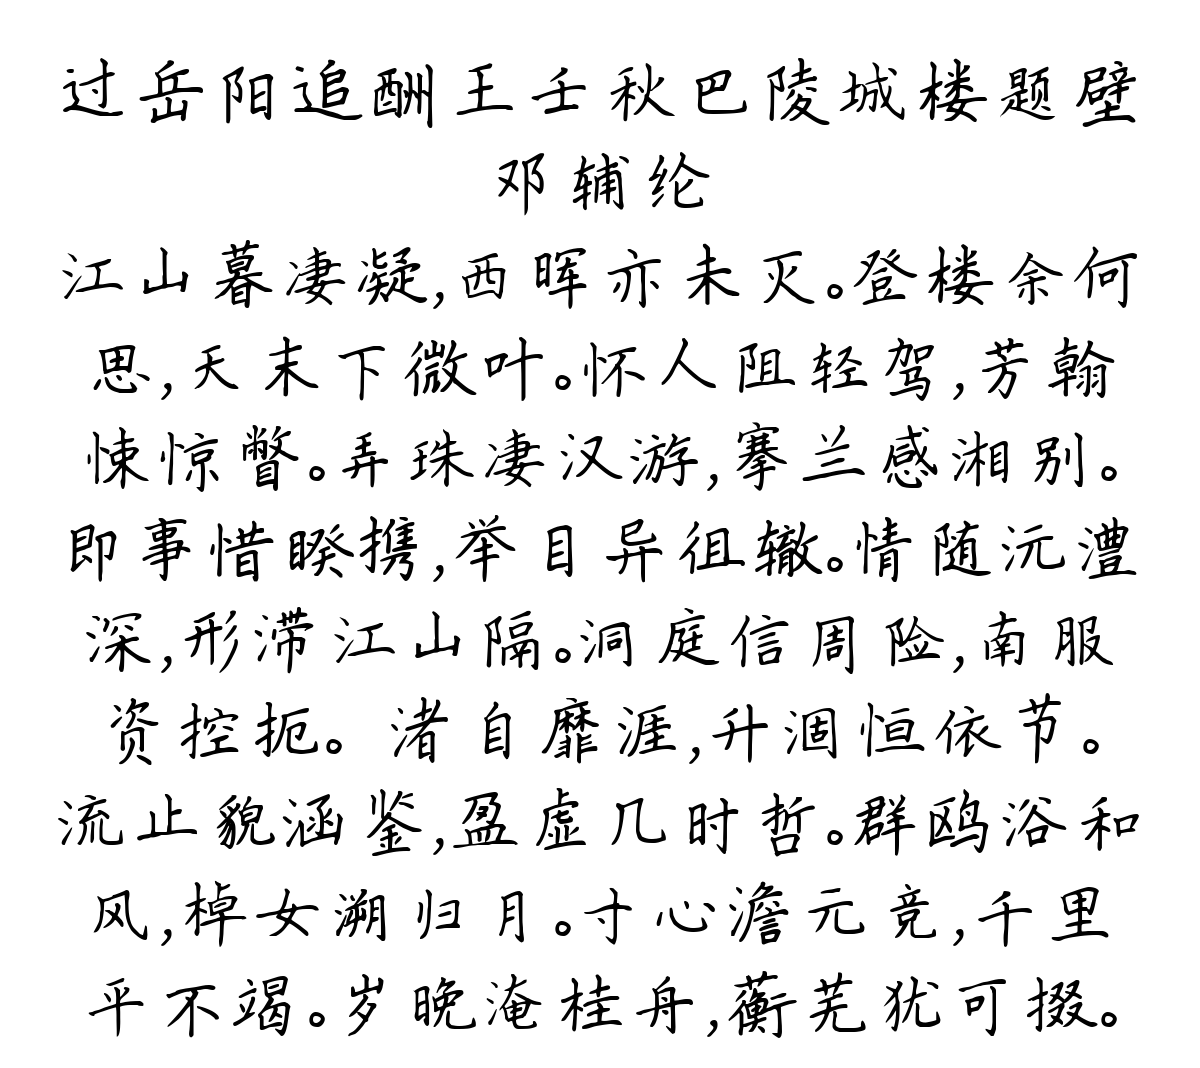 过岳阳追酬王壬秋巴陵城楼题壁
邓辅纶
江山暮凄凝,西晖亦未灭。登楼余何
思,天末下微叶。怀人阻轻驾,芳翰
悚惊瞥。弄珠凄汉游,搴兰感湘别。
即事惜暌携,举目异徂辙。情随沅澧
深,形滞江山隔。洞庭信周险,南服
资控扼。渚自靡涯,升涸恒依节。
流止貌涵鉴,盈虚几时哲。群鸥浴和
风,棹女溯归月。寸心澹元竞,千里
平不竭。岁晚淹桂舟,蘅芜犹可掇。